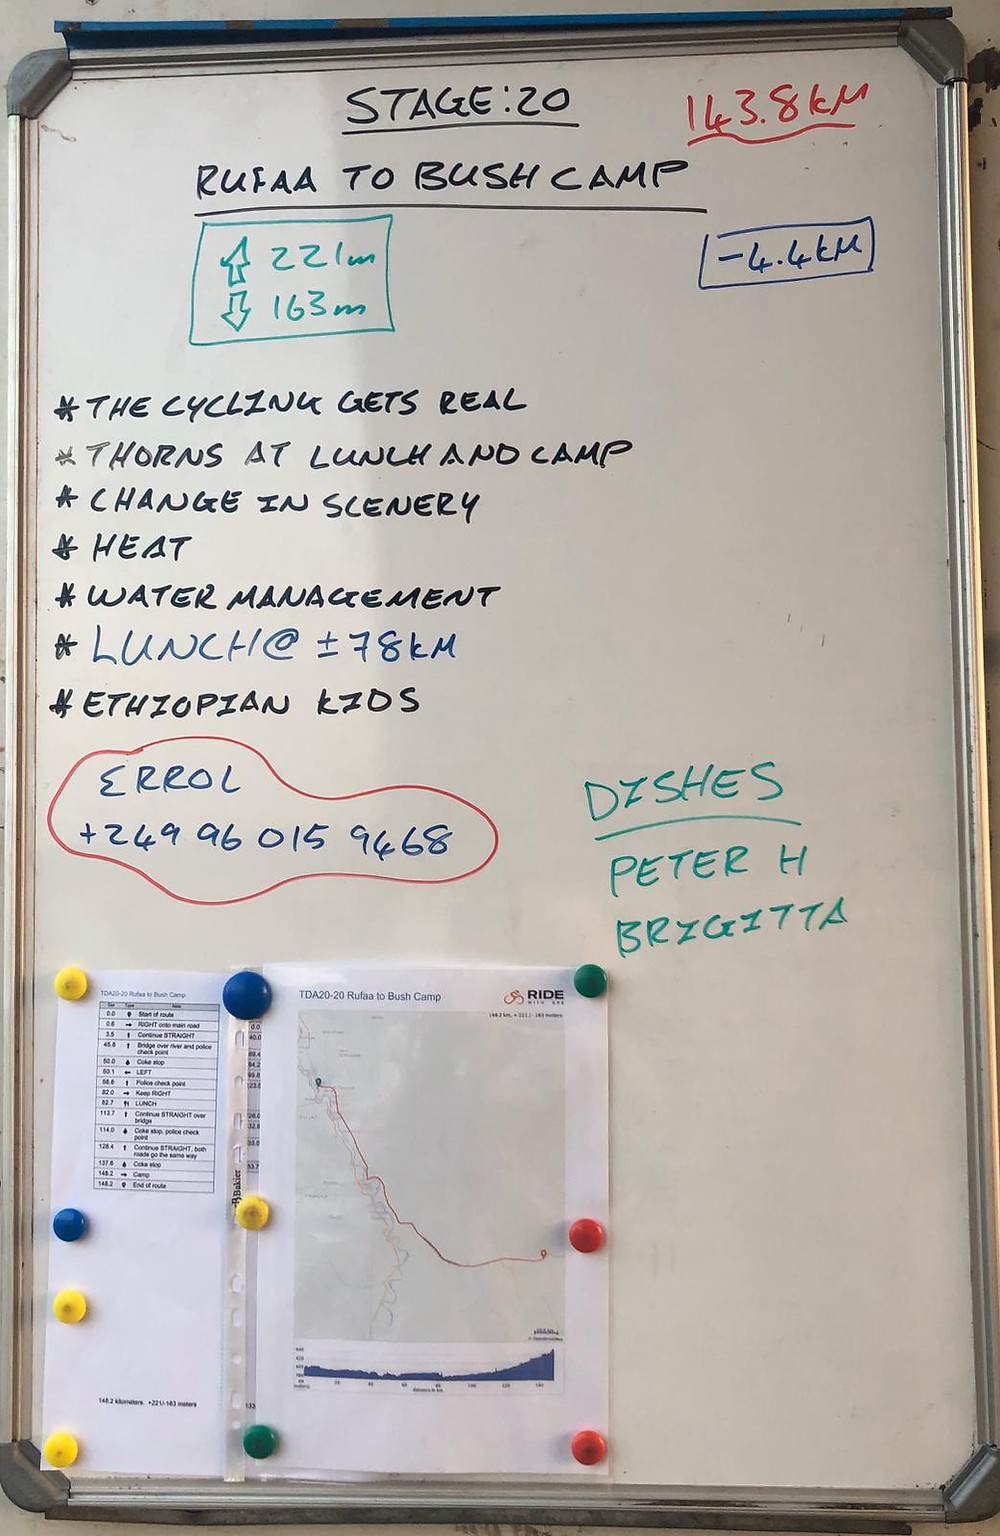 STAGE:20
143.8KM
RUFAA TO BUSH CAMP
221m
163m
-4.4KM
* THE CYCLING GETS REAL
* THORNS AT LUNCH AND CAMP
* CHANGE IN SCENERY
* HEAT
* WATER MANAGEMENT
* LUNCH@ ±78KM
* ETHIOPIAN KIDS
ERROL
+249 96 015 9468
DISHES
PETER H
BRIGITTA
TDA20-20 Rufaa to Bush Camp
Type Note
0.0 Start of route
0.6 RIGHT onto main road
3.5 Continue STRAIGHT
45.8 Bridge over river and police
check point
50.0 Coke stop
50.1 LEFT
58.8 Police check point
82.0 Keep RIGHT
82.7 LUNCH
113.7 Continue STRAIGHT over
bridge
114.0 Coke stop, police check
point
128.4 Continue STRAIGHT, both
roads go the same way
137.6 Coke stop
148.2 Camp
148.2 End of route
148.2 kilometers. +221/-163 meters
Bakier
TDA20-20 Rufaa to Bush Camp
RIDE
WITH GPS
148.2 km, + 221 / - 163 meters
distance in km